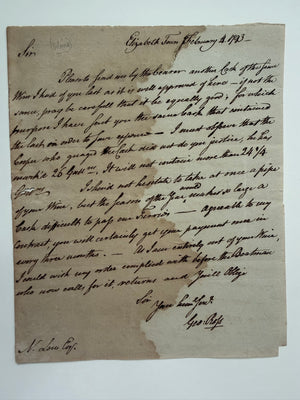 Elizabeth Town February 4. 1793.
Sir
Please to send me by the bearer another Cask of the same
Wine I had of you last as it is well approved of here — if not the
same, pray be careful that it be equally good; for which
purpose I have sent you the same that contained
the last in order to save expence — I must observe that the
Cooper who guaged the Cask did not do you justice, he has
mark'd 26 Gall. It will not contain more than 24 3/4
I should not hesitate to take at once a pipe
of your Wine, but the season of the Year would render so large a
Cask difficult to pass our — agreeable to my
Contract, you will certainly get your payment once in
every three months. — As I am entirely out of your Wine,
I could wish my order complied with before the Boatman
who now calls for it, returns and you'll oblige
Sir
Your hum. Serv.
Geo. Ross
N. Low Esq.